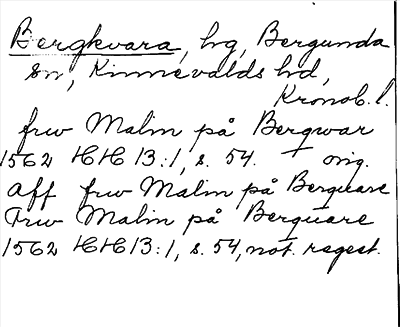 Bergkvara, hg, Bergunda
sn, Kinnevalds hd,
Kronob. l.
frw Malin på Bergwar
1562 HH 13:1, s. 54. orig.
Aff frw Malin på Berquare
Frw Malin på Berquare
1562 HH 13:1, s. 54, not. regest.